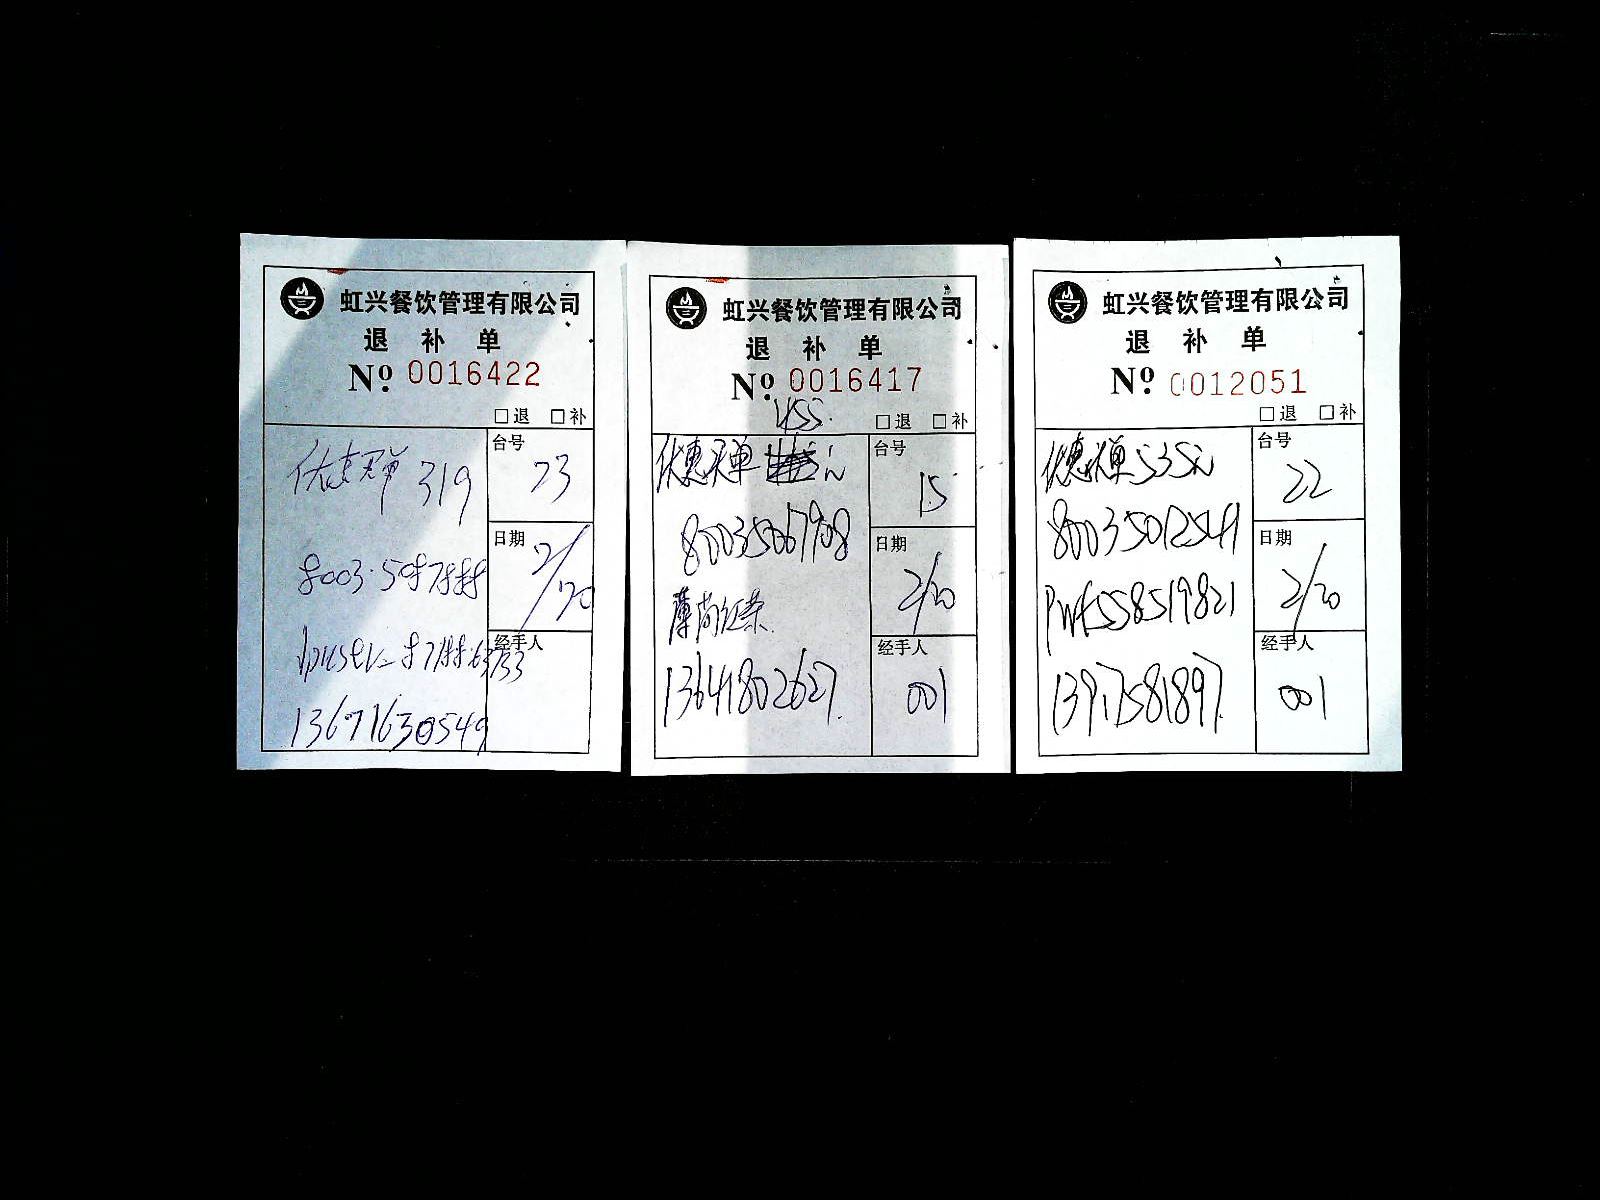 虹兴餐饮管理有限公司
退 补 单
Nº 0016422
□退 □补
优惠买单 319
台号
23
日期
2/20
经手人
13671630549
虹兴餐饮管理有限公司
退 补 单
Nº 0016417
455.
□退 □补
优惠买单 元
台号
15
80035067908
日期
2/20
13641802627.
经手人
001
虹兴餐饮管理有限公司
退 补 单
Nº 0012051
□退 □补
优惠买单535元
台号
22
80035012541
日期
2/20
558519821
经手人
13917581897.
001